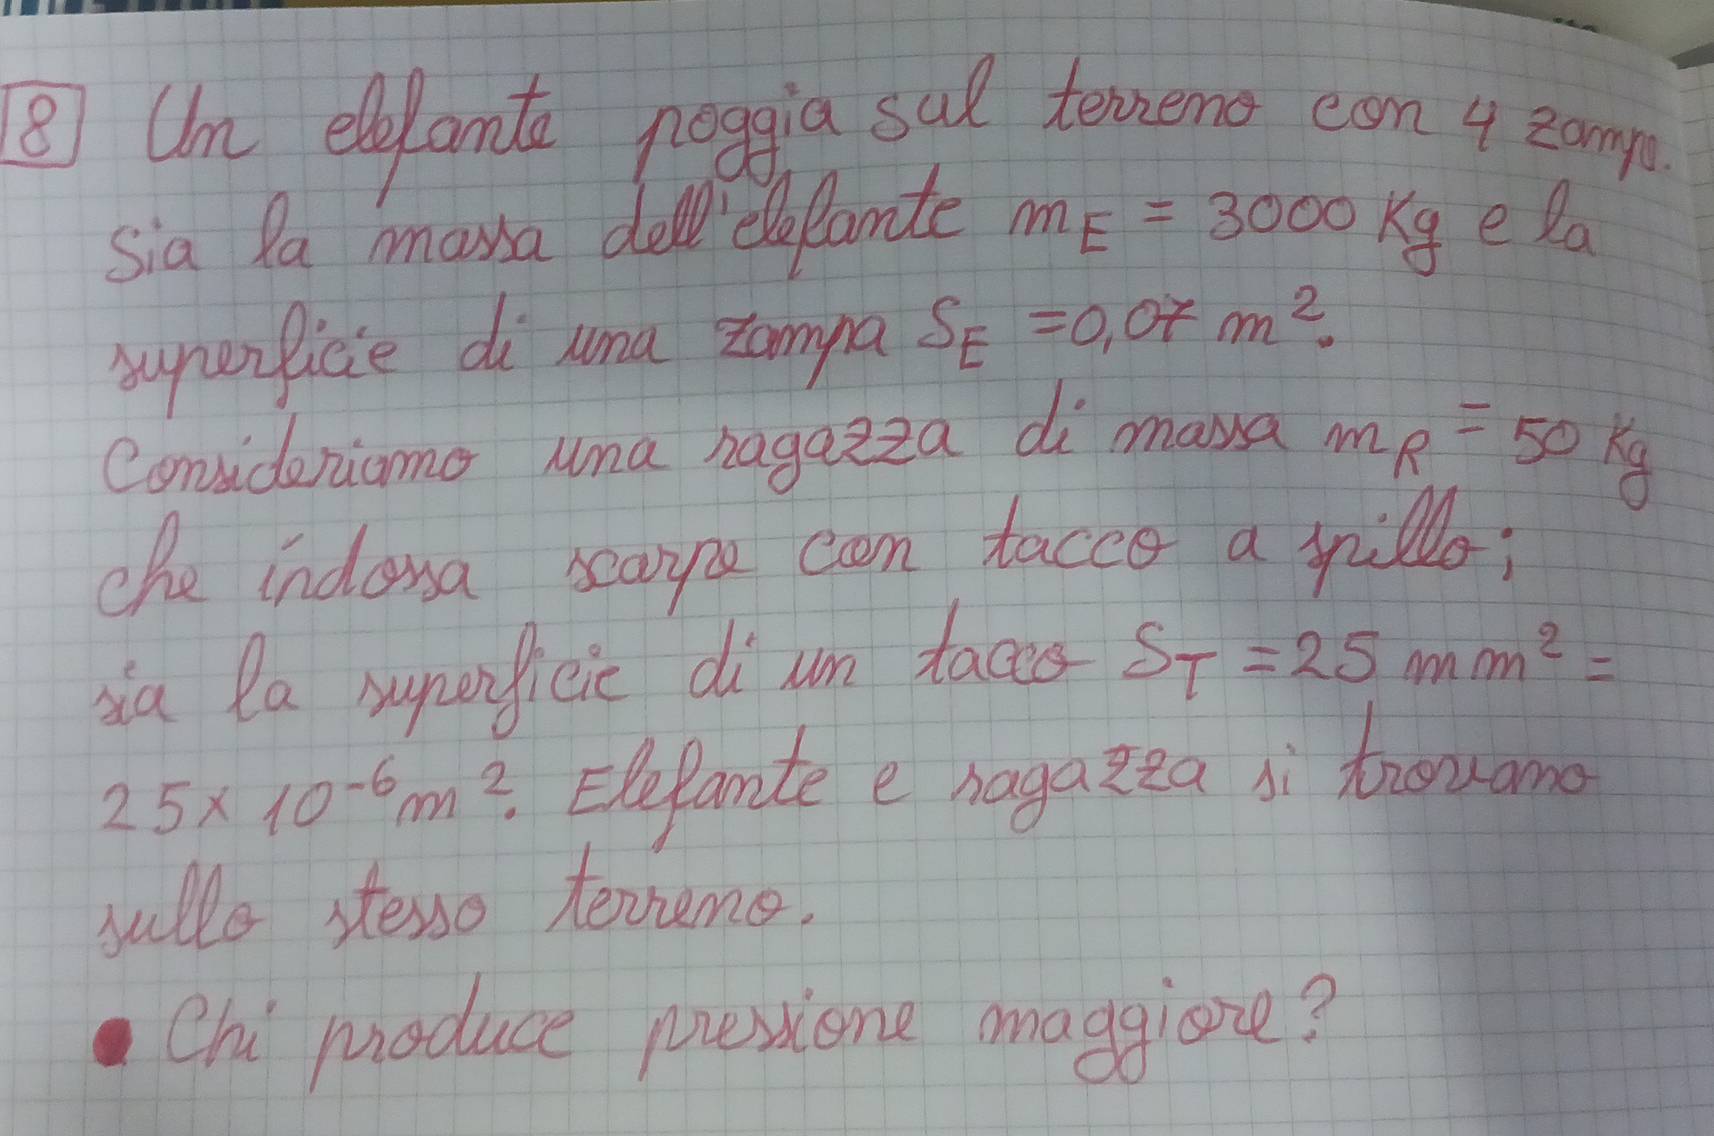 8 Un elefante poggia sul terreno con 4 zampe.
Sia la massa dell'elefante mE = 3000 Kg e la
superficie di una zampa SE = 0,07 m².
Consideriamo una ragazza di massa mR = 50 Kg
che indossa scarpe con tacco a spillo;
sia la superficie di un tacco ST = 25 mm² =
25 × 10⁻⁶ m². Elefante e ragazza si trovano
sullo stesso terreno.
• Chi produce pressione maggiore?